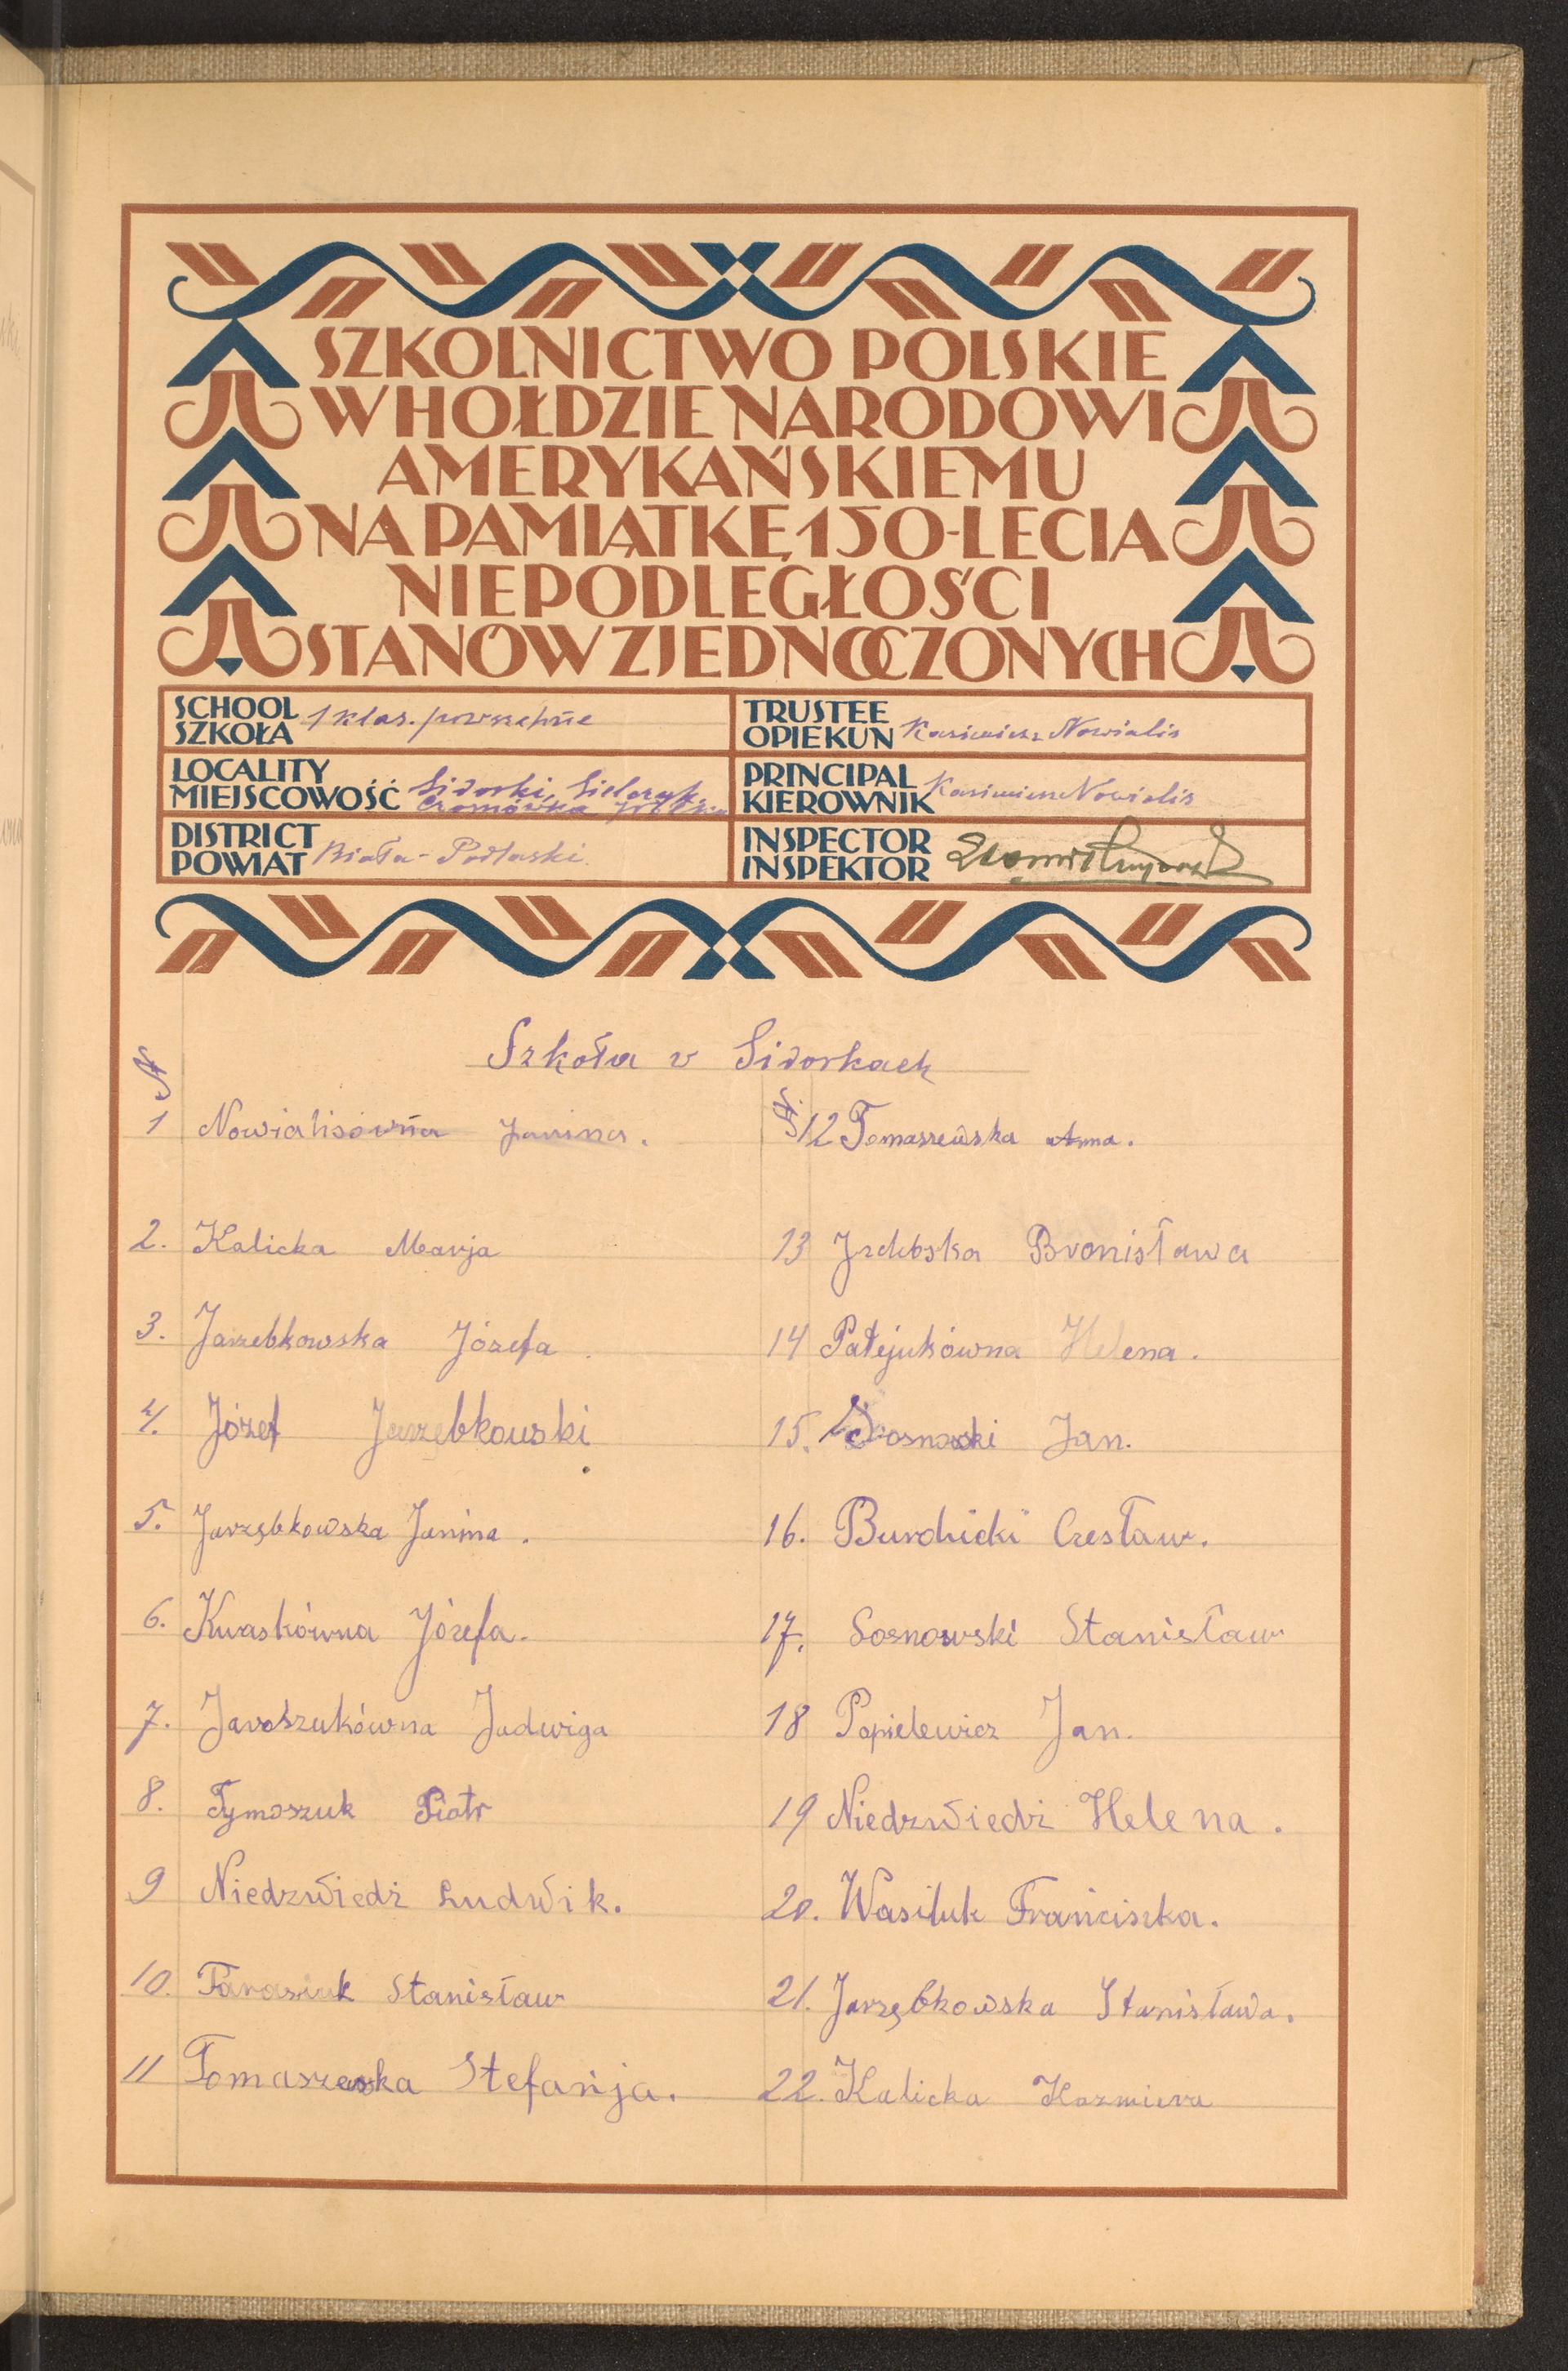 SZKOLNICTWO POLSKIE
W HOŁDZIE NARODOWI
AMERYKAŃSKIEMU
NA PAMIĄTKĘ 150-LECIA
NIEPODLEGŁOŚCI
STANÓW ZJEDNOCZONYCH
SCHOOL
SZKOŁA 1 klas. powszechne
TRUSTEE
OPIEKUN Kazimierz Nowialis
LOCALITY
MIEJSCOWOŚĆ Sidorki, Sielczyk,
PRINCIPAL
KIEROWNIK Kazimierz Nowialis
DISTRICT
POWIAT Biała-Podlaski.
INSPECTOR
INSPEKTOR
Szkoła v Sidorkach
№
1 Nowialisówna Janina.
2. Kalicka Marja
3. Jarzebkowska Józefa.
4. Józef Jarzębkowski
5. Jarzębkowska Janina.
6. Kwaskówna Józefa.
7. Jaroszukówna Jadwiga
8. Tymoszuk Piotr
9 Niedzwiedź Ludwik.
10. Tarasiuk Stanisław
11 Tomaszewska Stefańja.
№ 12 Tomaszewska Anna.
13 Izdebska Bronisława
14 Patejukówna Helena.
15. Sosnowski Jan.
16. Burdzicki Czesław.
17. Sosnowski Stanisław
18 Popielewicz Jan.
19 Niedzwiedź Helena.
20. Wasiluk Franciszka.
21. Jarzębkowska Stanisława.
22. Kalicka Kazmiera